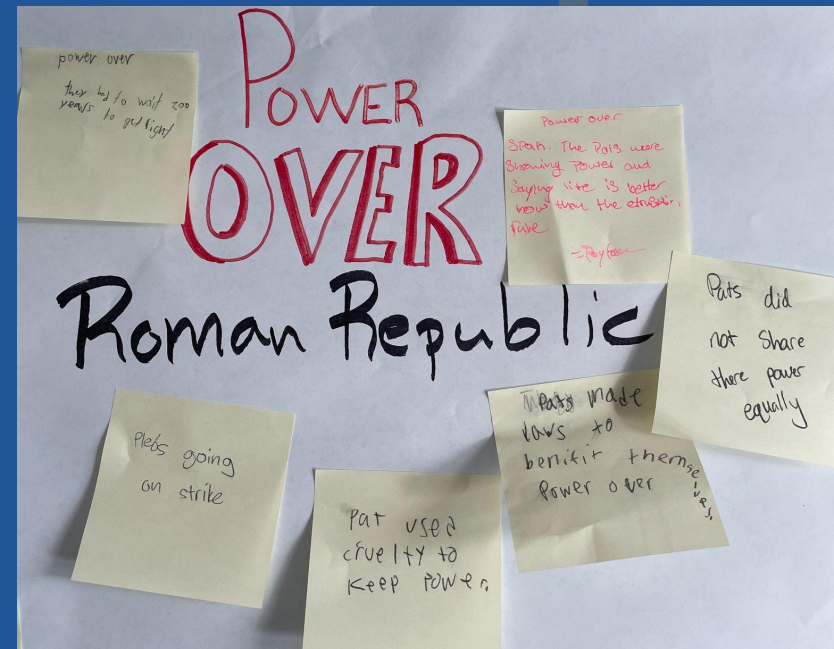 power over
they had to wait 200
years to get right
POWER
OVER
Roman Republic
Power over
The Pats were
Showing Power and
Saying life is better
now than the
rule
Pats did
not Share
there power
equally
Plebs going
on strike
Pat used
cruelty to
keep power.
Pats made
laws to
benifit themselves.
Power over